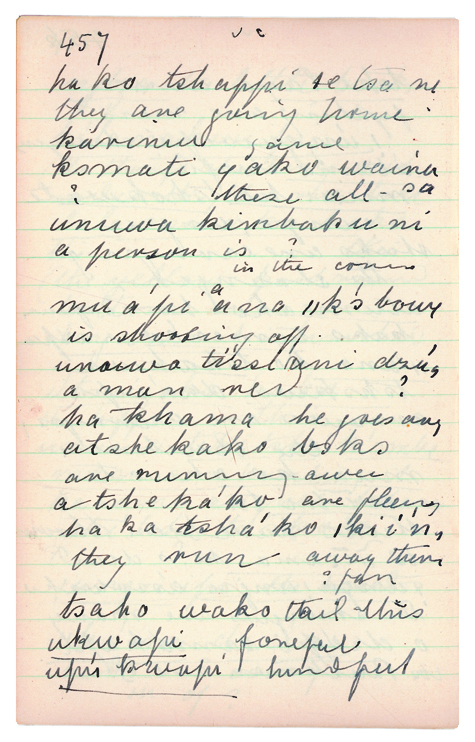 457
ha ko tshappi se tsa ne
they are going home
karimu game
ksmati yako waina
? these all - sa
unuwa kimbaku ni
a person is ?
in the corner
mu á pi ána
is shooting off
unouwo
a man ?
ha tkhama he goes away
atshe kako boks
are running away
atshe káko are fleeing
ha ka tsháko
they run away then
? ran
tsaho wako tail this
ukwapi forefeet
upis kwapi hindfeet